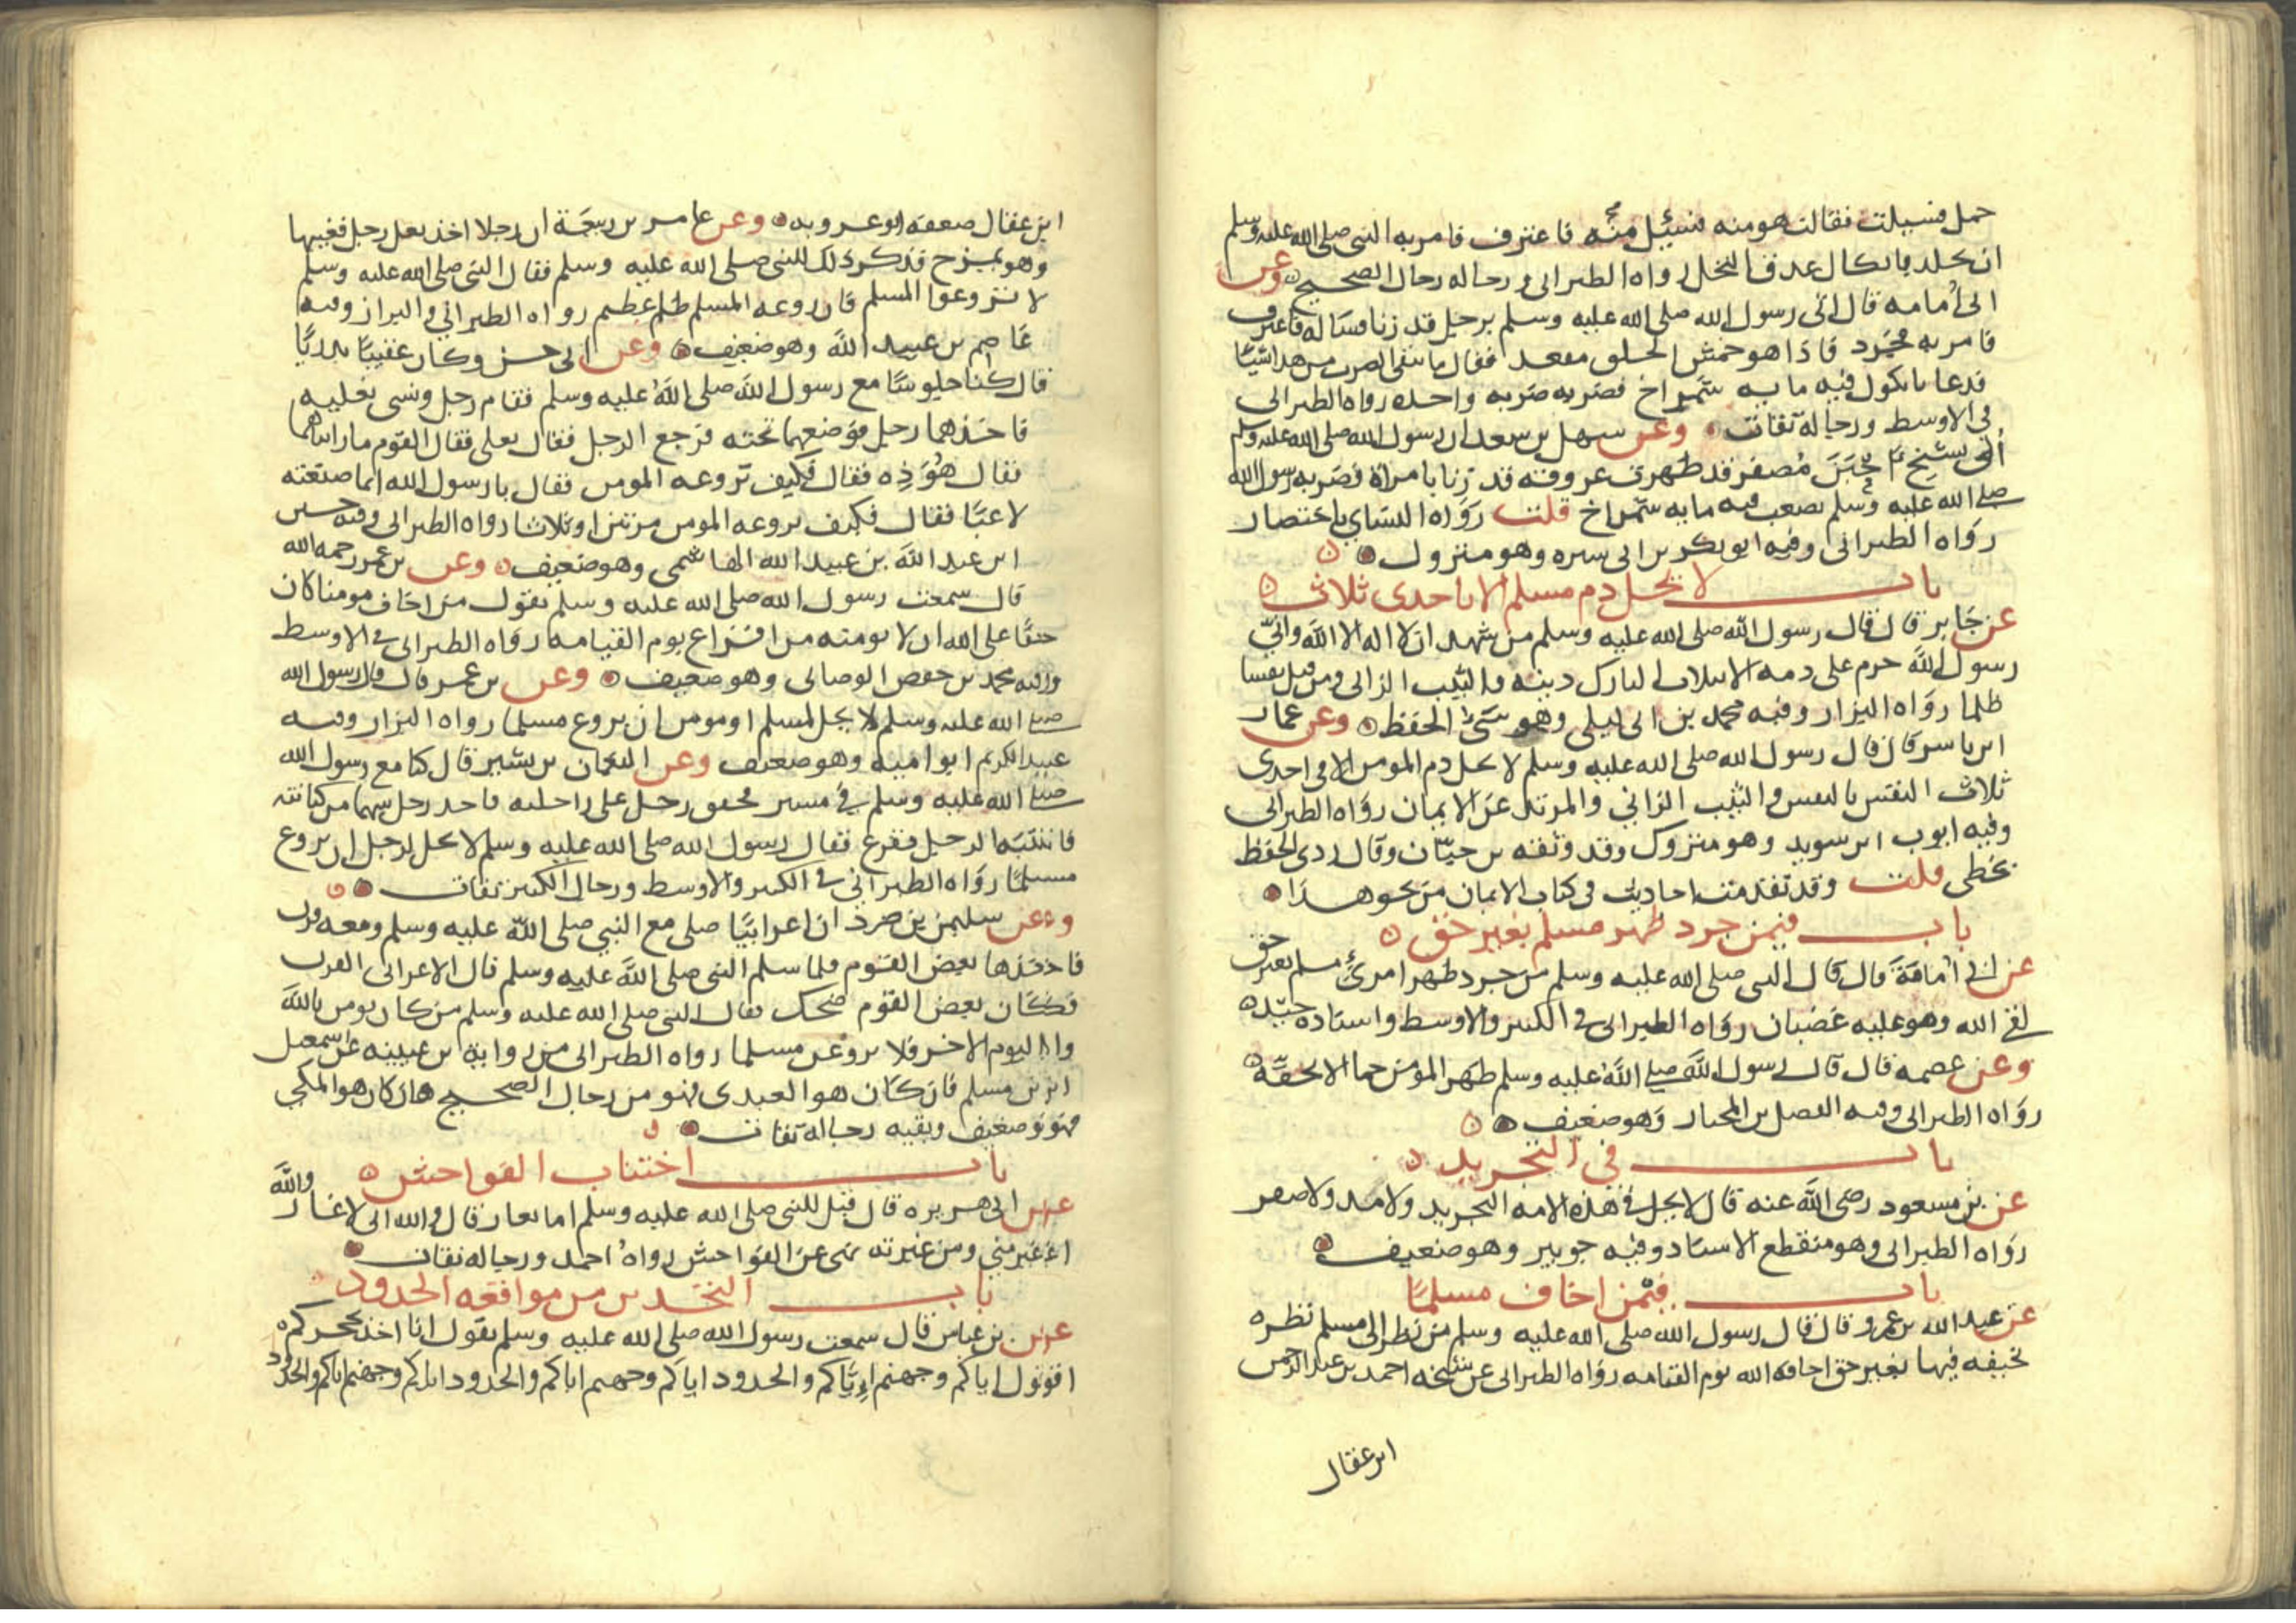 حمل فسيلت فقالت هو منه فسئل منه فاعترف فامر به النبى صلى الله عليه وسلم
ان يجلد باثكال عذق النخل رواه الطبرانى ورجاله رجال الصحيح وعن
ابى أمامه قال اتى رسول الله صلى الله عليه وسلم برجل قد زنا فساله فاعترف
فامر به فجرد فاذا هو حمش الخلق مقعد فقال ما يبقى الضرب من هذا شيئا
فدعا باثكول فيه مايه شمراخ فضربه ضربه واحده رواه الطبرانى
فى الاوسط ورجاله ثقات وعن سهل بن سعد ان رسول الله صلى الله عليه وسلم
أتى بشيخ مصفر قد ظهرت عروقه قد زنا بامراة فضربه رسول الله
صلى الله عليه وسلم بضعث فيه مايه شمراخ قلت رواه النساى باختصار
رواه الطبرانى وفيه ابو بكر بن ابى سبره وهو متروك
باب لا يحل دم مسلم الا باحدى ثلاث
عن جابر قال قال رسول الله صلى الله عليه وسلم من شهد ان لا اله الا الله وانى
رسول الله حرم على دمه الا بثلاث التارك دينه والثيب الزانى ومن قتل نفسا
ظلما رواه البزار وفيه محمد بن ابى ليلى وهو سئ الحفظ وعن عمار
ابن ياسر قال قال رسول الله صلى الله عليه وسلم لا يحل دم المومن الا فى احدى
ثلاث النفس بالنفس والثيب الزاني والمرتد عن الايمان رواه الطبرانى
وفيه ايوب ابن سويد وهو متروك وقد وثقه بن حبان وقال ردى الحفظ
يخطى قلت وقد تقدمت احاديث فى كتاب الايمان من نحو هذا
باب فيمن جرد ظهر مسلم بغير حق
عن ابى أمامة قال قال النبى صلى الله عليه وسلم من جرد ظهر امرئ مسلم بغير حق
لقى الله وهو عليه غضبان رواه الطبرانى فى الكبير والاوسط واسناده جيد
وعن عصمه قال قال رسول الله صلى الله عليه وسلم ظهر المومن حما الا بحقه
رواه الطبرانى وفيه الفضل بن المختار وهو ضعيف
باب فى التجريد
عن بن مسعود رضى الله عنه قال لا يحل فى هذه الامه التجريد ولا مد ولا صفر
رواه الطبرانى وهو منقطع الاسناد وفيه جويبر وهو ضعيف
باب فيمن اخاف مسلما
عن عبد الله بن عمرو قال قال رسول الله صلى الله عليه وسلم من نظر الى مسلم نظره
تخيفه فيها بغير حق اخافه الله يوم القيامه رواه الطبرانى عن شيخه احمد بن عبد الرحمن
ابن عقال
ابن عقال ضعفه ابو عروبه وعن عامر بن ربيعة ان رجلا اخذ نعل رجل فغيبها
وهو يمزح فذكر ذلك للنبى صلى الله عليه وسلم فقال النبى صلى الله عليه وسلم
لا تروعوا المسلم فان روعه المسلم ظلم عظيم رواه الطبراني والبزار وفيه
عاصم بن عبيد الله وهو ضعيف وعن ابى حسن وكان عقبيا بدريا
قال كنا جلوسا مع رسول الله صلى الله عليه وسلم فقام رجل ونسى نعليه
فاخذهما رجل فوضعهما تحته فرجع الرجل فقال نعلى فقال القوم ما رايناهما
فقال هو ذه فقال فكيف تروعه المومن فقال يا رسول الله انما صنعته
لاعبا فقال فكيف بروعه المومن مرتين او ثلاثا رواه الطبرانى وفيه حسين
ابن عبد الله بن عبيد الله الهاشمى وهو ضعيف وعن بن عمر رحمه الله
قال سمعت رسول الله صلى الله عليه وسلم يقول من اخاف مومنا كان
حقا على الله ان لا يومنه من افزاع يوم القيامه رواه الطبرانى فى الاوسط
وفيه محمد بن حفص الوصابى وهو ضعيف وعن بن عمر قال قال رسول الله
صلى الله عليه وسلم لا يحل لمسلم او مومن ان يروع مسلما رواه البزار وفيه
عبد الكريم ابو اميه وهو ضعيف وعن النعمان بن بشير قال كنا مع رسول الله
صلى الله عليه وسلم فى مسير فخفق رجل على راحلته فاخذ رجل سهما من كنانته
فانتبه الرجل ففزع فقال رسول الله صلى الله عليه وسلم لا يحل لرجل ان يروع
مسلما رواه الطبراني فى الكبير والاوسط ورجال الكبير ثقات
وعن سليمن بن صرد ان اعرابيا صلى مع النبي صلى الله عليه وسلم ومعه قرن
فاخذها بعض القوم فلما سلم النبى صلى الله عليه وسلم قال الاعرابى القرن
فكان بعض القوم ضحك فقال النبى صلى الله عليه وسلم من كان يومن بالله
واليوم الاخر فلا يروعن مسلما رواه الطبرانى من رواية بن عيينه عن اسمعيل
ابن مسلم فان كان هو العبدى فهو من رجال الصحيح وان كان هو المكي
فهو ضعيف وبقيه رجاله ثقات
باب اجتناب الفواحش
عن ابى هريره قال قيل للنبى صلى الله عليه وسلم اما تغار قال والله انى لاغار والله
اغير منى ومن غيرته نهى عن الفواحش رواه احمد ورجاله ثقات
باب التحذير من مواقعه الحدود
عن بن عباس قال سمعت رسول الله صلى الله عليه وسلم يقول انا اخذ بحجزكم
اقول اياكم وجهنم اياكم والحدود اياكم وجهنم اياكم والحدود اياكم وجهنم اياكم والحدود